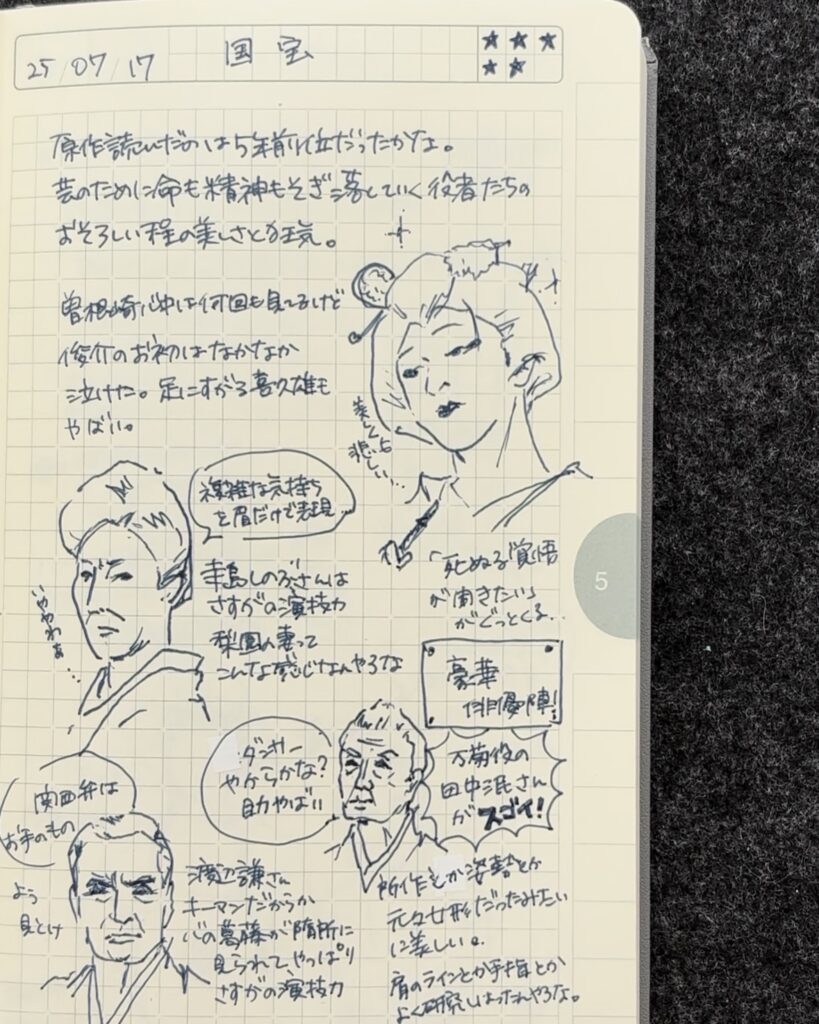 25/07/17
国宝
★★★
★★
原作読んだのは5年前位だったかな。
芸のために命も精神もそぎ落としていく役者たちの
おそろしい程の美しさと狂気。
曽根崎心中は何回も見てるけど
俊介のお初はなかなか
泣けた。足にすがる喜久雄も
やばい。
美しく
悲しい…
複雑な気持ち
を眉だけで表現
寺島しのぶさんは
さすがの演技力
梨園の妻って
こんな感じなんやろな
「死ぬる覚悟
が聞きたい」
がぐっとくる…
5
豪華
俳優陣!
ダンサー
やからかな?
動やばい
万菊役の
田中泯さん
がスゴイ!
関西弁は
お手のもの
よう
見とけ
渡辺謙さん
キーマンだからか
心の葛藤が随所に
見られて、やっぱり
さすがの演技力
所作とか姿勢とか
元々女形だったみたい
に美しい。
肩のラインとか手指とか
よく研究しはったんやろな。